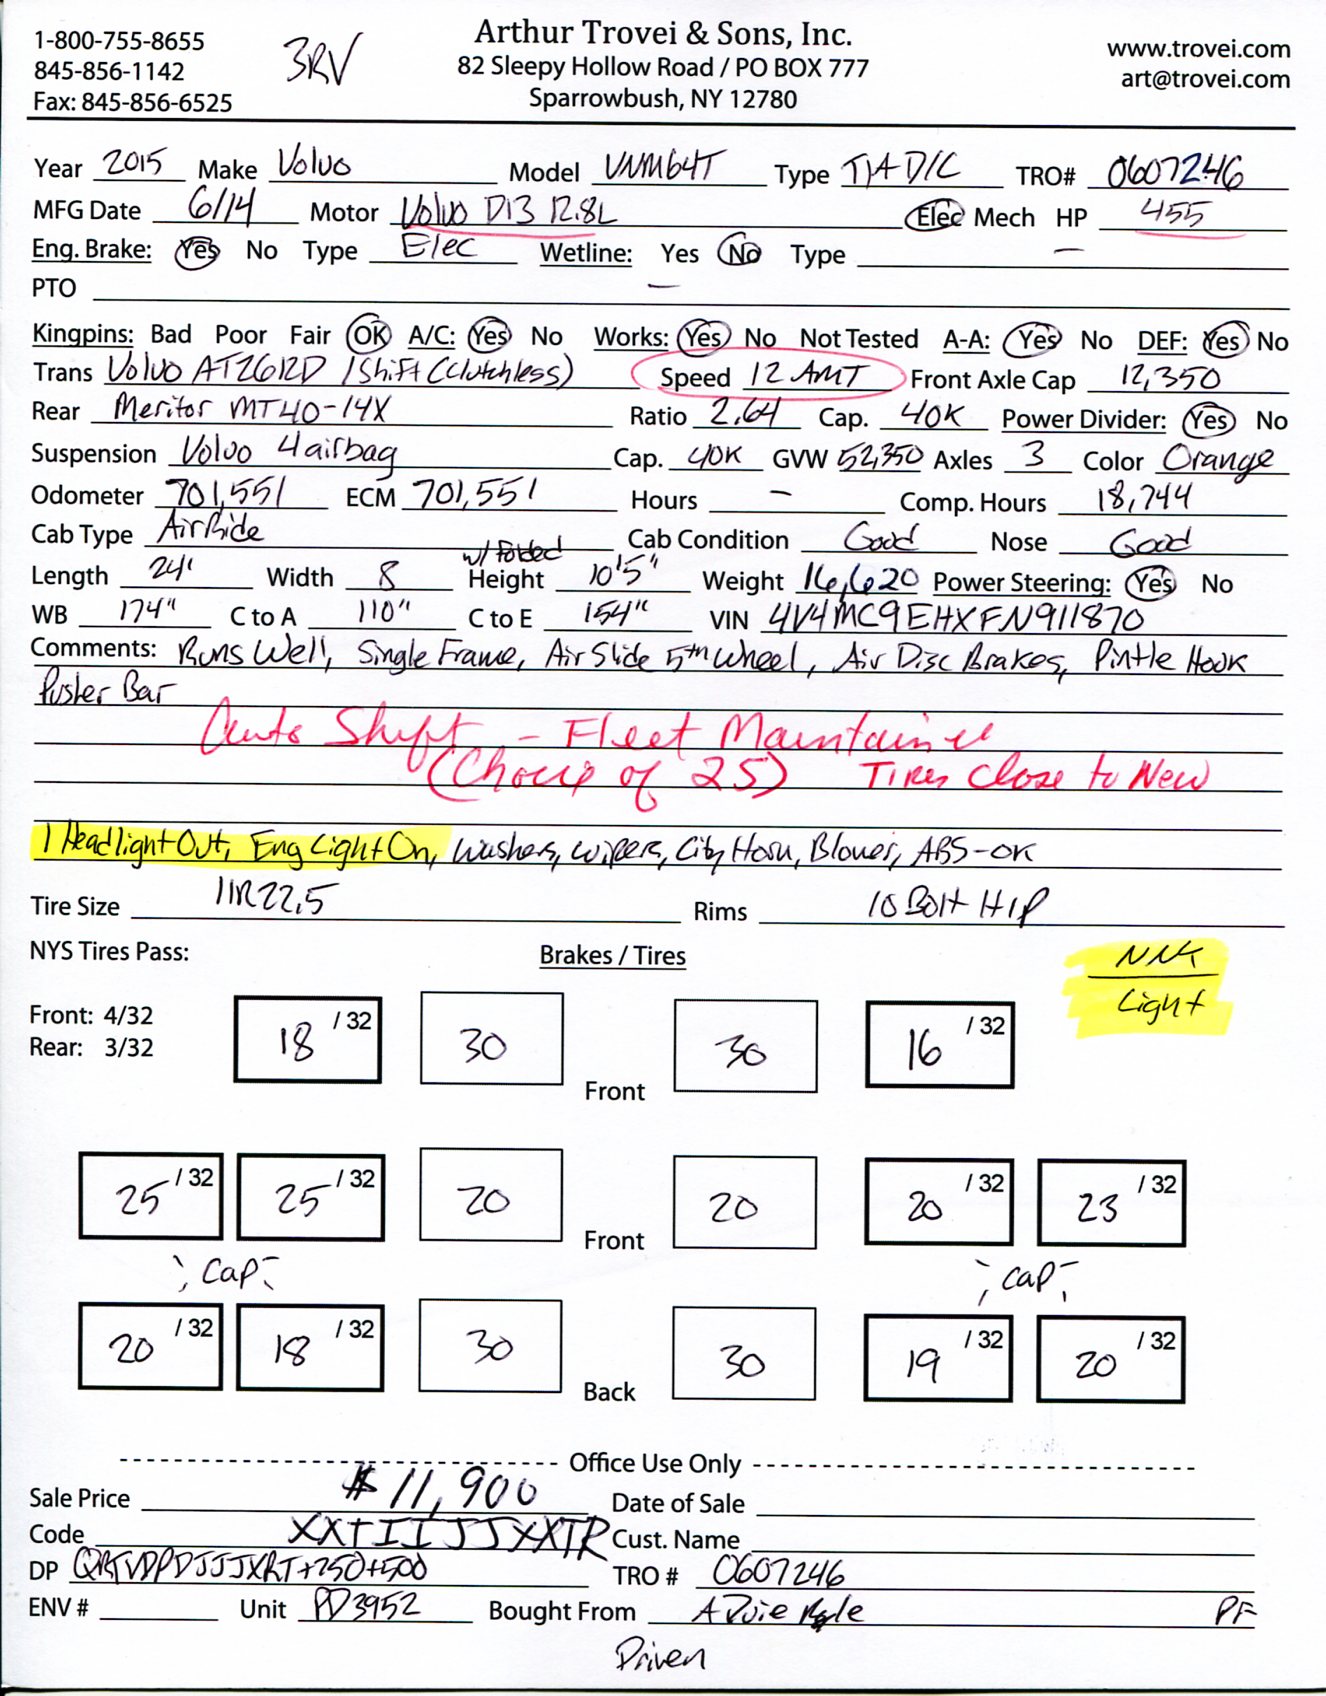 1-800-755-8655
845-856-1142
Fax: 845-856-6525
3RV
Arthur Trovei & Sons, Inc.
82 Sleepy Hollow Road / PO BOX 777
Sparrowbush, NY 12780
www.trovei.com
art@trovei.com
Year 2015 Make Volvo Model VNM64T Type T/A D/C TRO# 0607246
MFG Date 6/14 Motor Volvo D13 12.8L Elec Mech HP 455
Eng. Brake: Yes No Type Elec Wetline: Yes No Type —
PTO —
Kingpins: Bad Poor Fair OK A/C: Yes No Works: Yes No Not Tested A-A: Yes No DEF: Yes No
Trans Volvo AT2612D IShift (Clutchless) Speed 12 AMT Front Axle Cap 12,350
Rear Meritor MT40-14X Ratio 2.64 Cap. 40K Power Divider: Yes No
Suspension Volvo 4 airbag Cap. 40K GVW 52,350 Axles 3 Color Orange
Odometer 701,551 ECM 701,551 Hours - Comp. Hours 18,744
Cab Type AirRide Cab Condition Good Nose Good
w/ Folded
Length 24' Width 8 Height 10'5" Weight 16,620 Power Steering: Yes No
WB 174" C to A 110" C to E 154" VIN 4V4MC9EHXFN911870
Comments: Runs Well, Single Frame, Air Slide 5th Wheel, Air Disc Brakes, Pintle Hook
Pusher Bar
Auto Shift - Fleet Maintained
(Choice of 25) Tires Close to New
1 Headlight Out, Eng Light On, Washers, Wipers, City Horn, Blower, ABS-OK
Tire Size 11R22.5 Rims 10 Bolt H/P
NYS Tires Pass: Brakes / Tires
Light
Front: 4/32
Rear: 3/32
18 /32 30 Front 30 16 /32
25 /32 25 /32 20 Front 20 20 /32 23 /32
Cap Cap
20 /32 18 /32 30 Back 30 19 /32 20 /32
Office Use Only
Sale Price $11,900 Date of Sale
Code XXTIIJJXXTR Cust. Name
DP +250+500 TRO # 0607246
ENV # Unit PD3952 Bought From A Duie Pyle PF
Driven